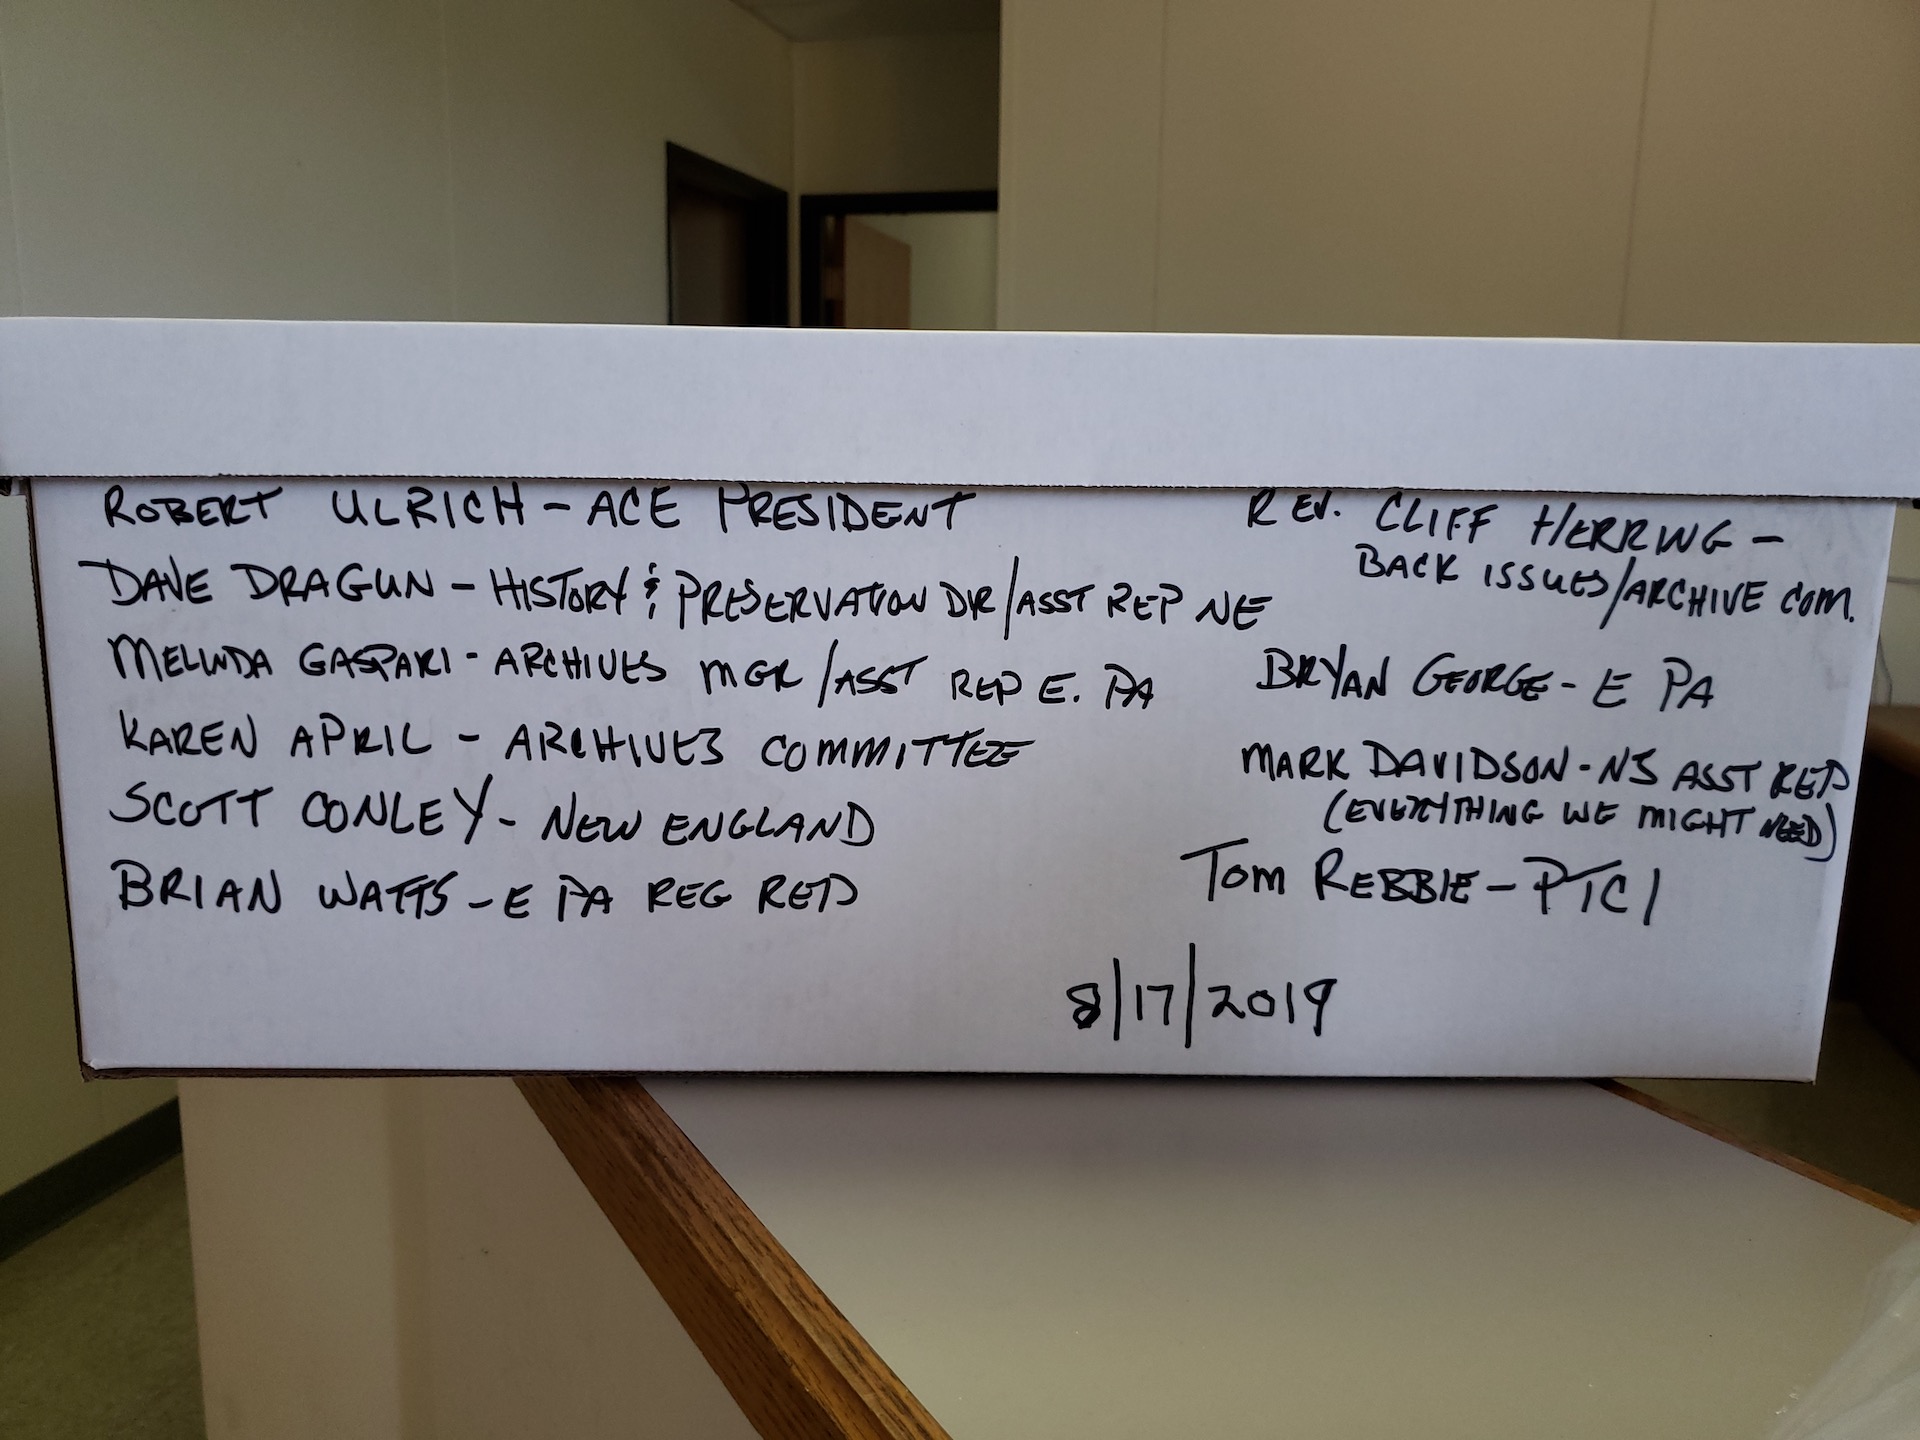 ROBERT ULRICH - ACE PRESIDENT
DAVE DRAGUN - HISTORY & PRESERVATION DIR/ASST REP NE
MELINDA GASPARI - ARCHIVES MGR/ASST REP E. PA
KAREN APRIL - ARCHIVES COMMITTEE
SCOTT CONLEY - NEW ENGLAND
BRIAN WATTS - E PA REG REP
REV. CLIFF HERRING -
BACK ISSUES/ARCHIVE COM.
BRYAN GEORGE - E PA
MARK DAVIDSON - NJ ASST REP
(EVERYTHING WE MIGHT NEED)
TOM REBBIE - PTCI
8/17/2019